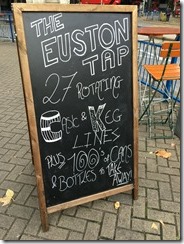 THE
EUSTON
TAP
27 ROTATING
CASK & KEG
LINES
PLUS 100's OF CANS
& BOTTLES TO TAKE
AWAY!